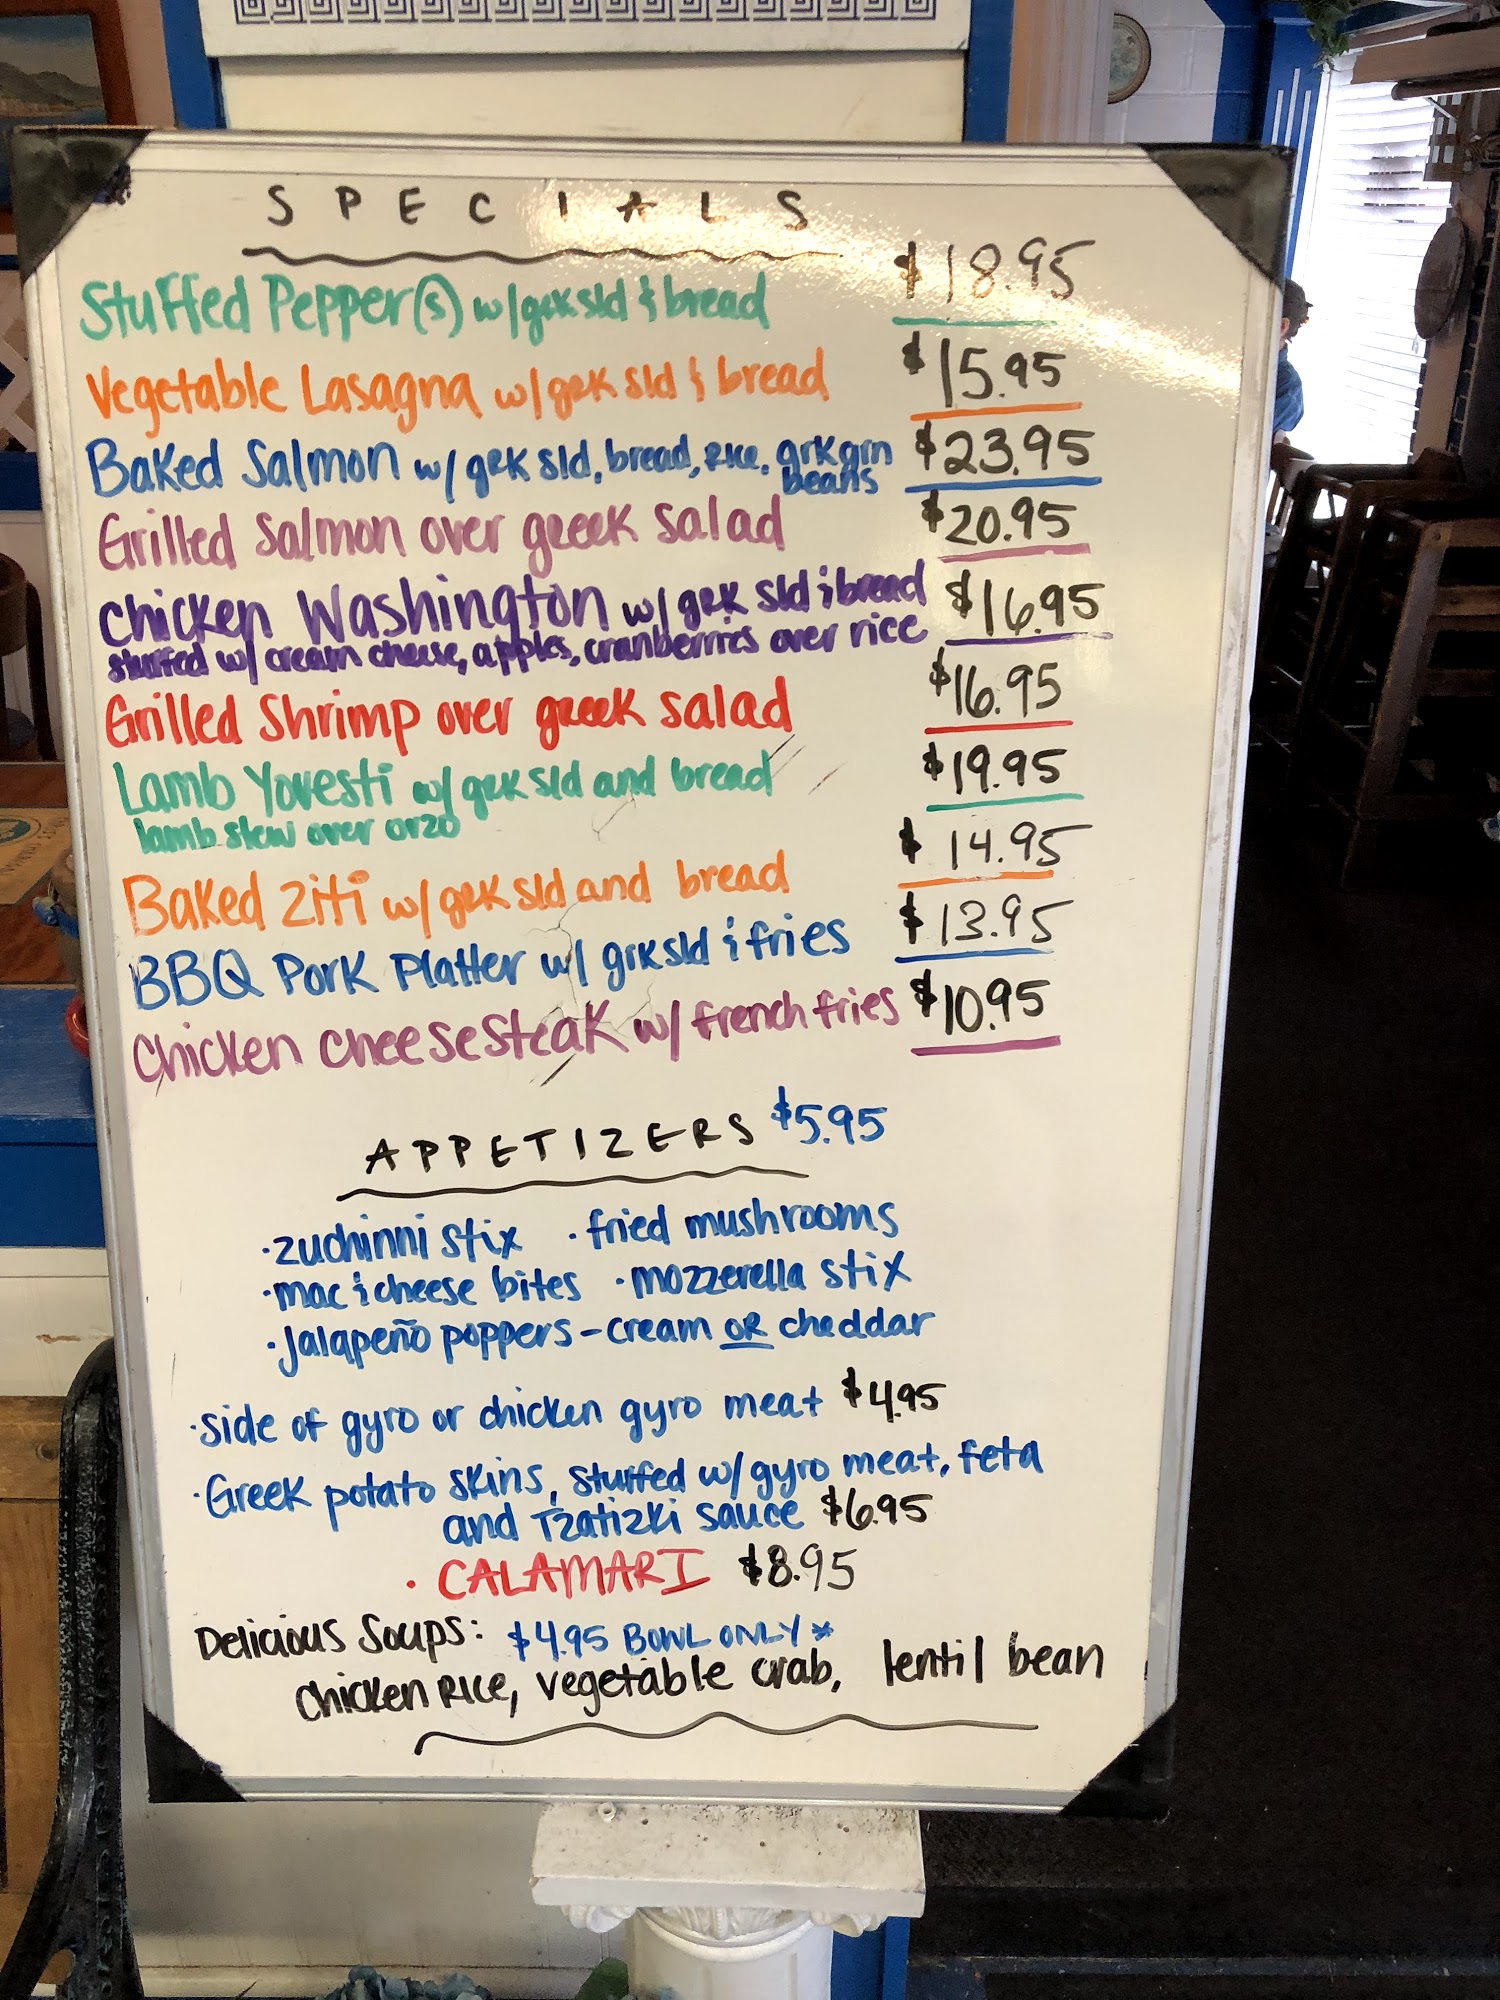 SPECIALS
Stuffed Pepper(s) w/grk sld & bread $18.95
Vegetable Lasagna w/grk sld & bread $15.95
Baked Salmon w/ grk sld, bread, rice, grk grn $23.95
beans
Grilled Salmon over greek salad $20.95
Chicken Washington w/ grk sld & bread $16.95
stuffed w/ cream cheese, apples, cranberries over rice
Grilled Shrimp over greek salad $16.95
Lamb Yovesti w/ grk sld and bread $19.95
lamb stew over orzo
Baked Ziti w/ grk sld and bread $14.95
BBQ Pork Platter w/ grk sld & fries $13.95
Chicken Cheesesteak w/ french fries $10.95
APPETIZERS $5.95
·zuchinni stix ·fried mushrooms
·mac & cheese bites ·mozzerella stix
·jalapeño poppers - cream OR cheddar
·side of gyro or chicken gyro meat $4.95
·Greek potato skins, stuffed w/ gyro meat, feta
and Tzatizki sauce $6.95
· CALAMARI $8.95
Delicious Soups: $4.95 BOWL ONLY *
chicken Rice, vegetable crab, lentil bean